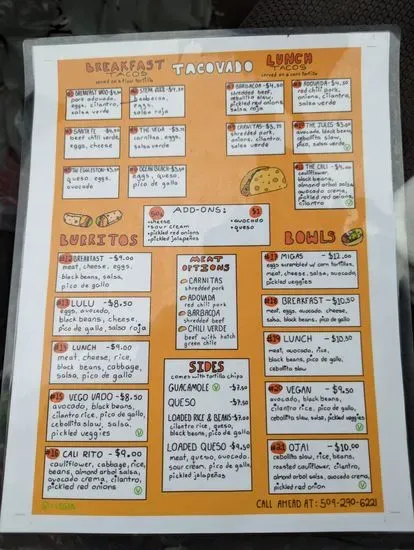 BREAKFAST
TACOS
served on a flour tortilla
TACOVADO
LUNCH
TACOS
served on a corn tortilla
BREAKFAST VADO -$4.50
pork adovada,
eggs, cilantro,
salsa verde
barbacoa,
eggs,
salsa rojo
SANTA FE
beef chili verde,
eggs, cheese
THE VEGA -$3.75
carnitas, eggs,
salsa verde
THE EGGLESTON -$3.50
queso, eggs,
avocado
OCEAN BEACH -$3.50
eggs, queso,
pico de gallo
BARBACOA -$4.50
shredded beef,
cebollita slaw,
pickled red onions,
salsa rojo
ADOVADA -$4.50
red chili pork,
onions, cilantro,
salsa verde
CARNITAS -$3.75
shredded pork,
onions, cilantro,
salsa verde
THE JULES -$3.50
avocado, black beans,
cebollita slaw,
pico, salsa verde
THE CALI -$4.00
cauliflower,
black beans,
almond arbol salsa,
avocado crema,
pickled red onions,
cilantro
50¢
ADD-ONS:
$1
•cheese
•sour cream
•pickled red onions
•pickled jalapeños
•avocado
•queso
BURRITOS
#12 BREAKFAST -$9.00
meat, cheese, eggs,
black beans, salsa,
pico de gallo
#13 LULU -$8.50
eggs, avocado,
black beans, cheese,
pico de gallo, salsa roja
#14 LUNCH -$9.00
meat, cheese, rice,
black beans, cabbage,
salsa, pico de gallo
#15 VEGO VADO -$8.50
avocado, black beans,
cilantro rice, pico de gallo,
cebollita slaw, salsa,
pickled veggies
V
#16 CALI RITO -$9.00
cauliflower, cabbage, rice,
beans, almond arbol salsa,
avocado crema, cilantro,
pickled red onions
V
MEAT
OPTIONS
CARNITAS
shredded pork
ADOVADA
red chili pork
BARBACOA
shredded beef
CHILI VERDE
beef with hatch
green chile
SIDES
comes with tortilla chips
GUACAMOLE V -$7.50
QUESO -$7.50
LOADED RICE & BEANS -$7.00
cilantro rice, queso,
black beans, pico de gallo
LOADED QUESO -$9.50
meat, queso, avocado,
sour cream, pico de gallo,
pickled jalapeños
BOWLS
#17 MIGAS -$12.00
eggs scrambled w/ corn tortillas,
meat, cheese, salsa, avocado,
pickled veggies
#18 BREAKFAST -$10.50
meat, eggs, avocado, cheese,
salsa, black beans, pico de gallo
#19 LUNCH -$10.50
meat, avocado, rice,
black beans, pico de gallo,
cebollita slaw
#20 VEGAN -$9.50
avocado, black beans,
cilantro rice, pico de gallo,
cebollita slaw, salsa, pickled veggies
V
#21 OJAI -$10.00
cebollita slaw, rice, beans,
roasted cauliflower, cilantro,
almond arbol salsa,
avocado crema,
pickled red onion
V
CALL AHEAD AT: 509-290-6221